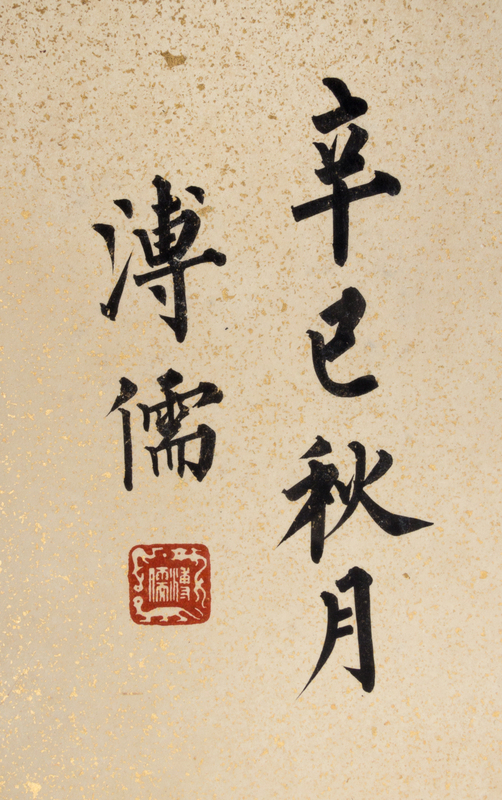 辛巳秋月
溥儒
溥儒